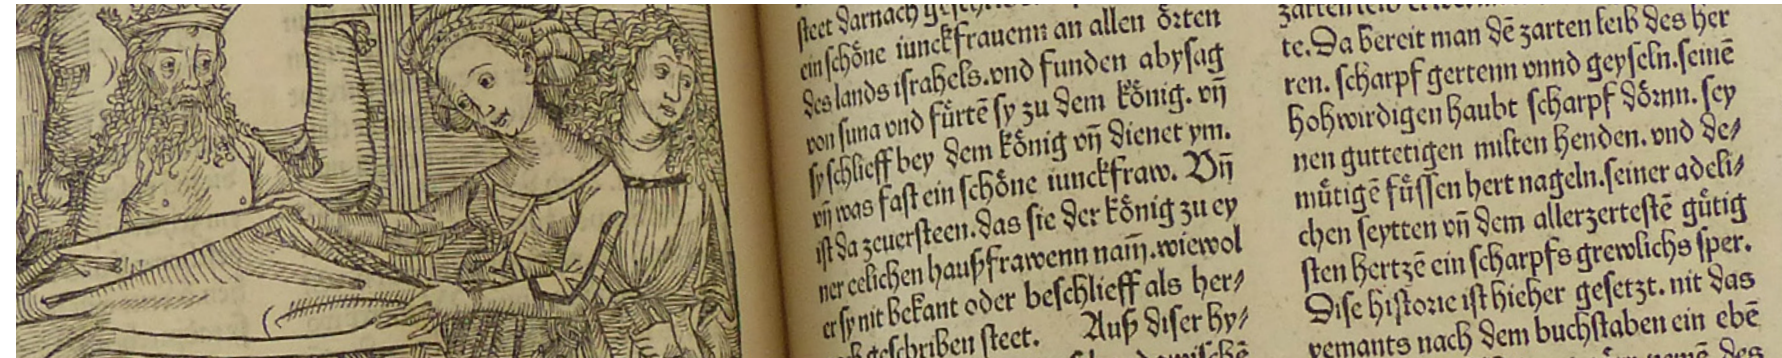 steet darnach
ein schöne iunckfrauenn an allen örten
des lands israhels.vnd funden abysag
von suna vnd fürtē sy zu dem künig. vn̄
sy schlieff bey dem künig vn̄ dienet ym.
vn̄ was fast ein schöne iunckfraw. Vn̄
ist da zeuersteen.das sie der künig zu ey
ner eelichen haußfrawenn nam̄.wiewol
er sy nit bekant oder beschlieff als her⸗
geschriben steet. Auß diser hy⸗
zarten leib
te.Da bereit man dē zarten leib des her
ren. scharpf gertenn vnnd geyseln.seinē
hohwirdigen haubt scharpf dörnn. sey
nen guttetigen milten henden. vnd de⸗
mütigē füssen hert nageln.seiner adeli⸗
chen seytten vn̄ dem allerzertestē gütig
sten hertzē ein scharpfs grewlichs sper.
Dise historie ist hieher gesetzt. nit das
yemants nach dem buchstaben ein ebē
des